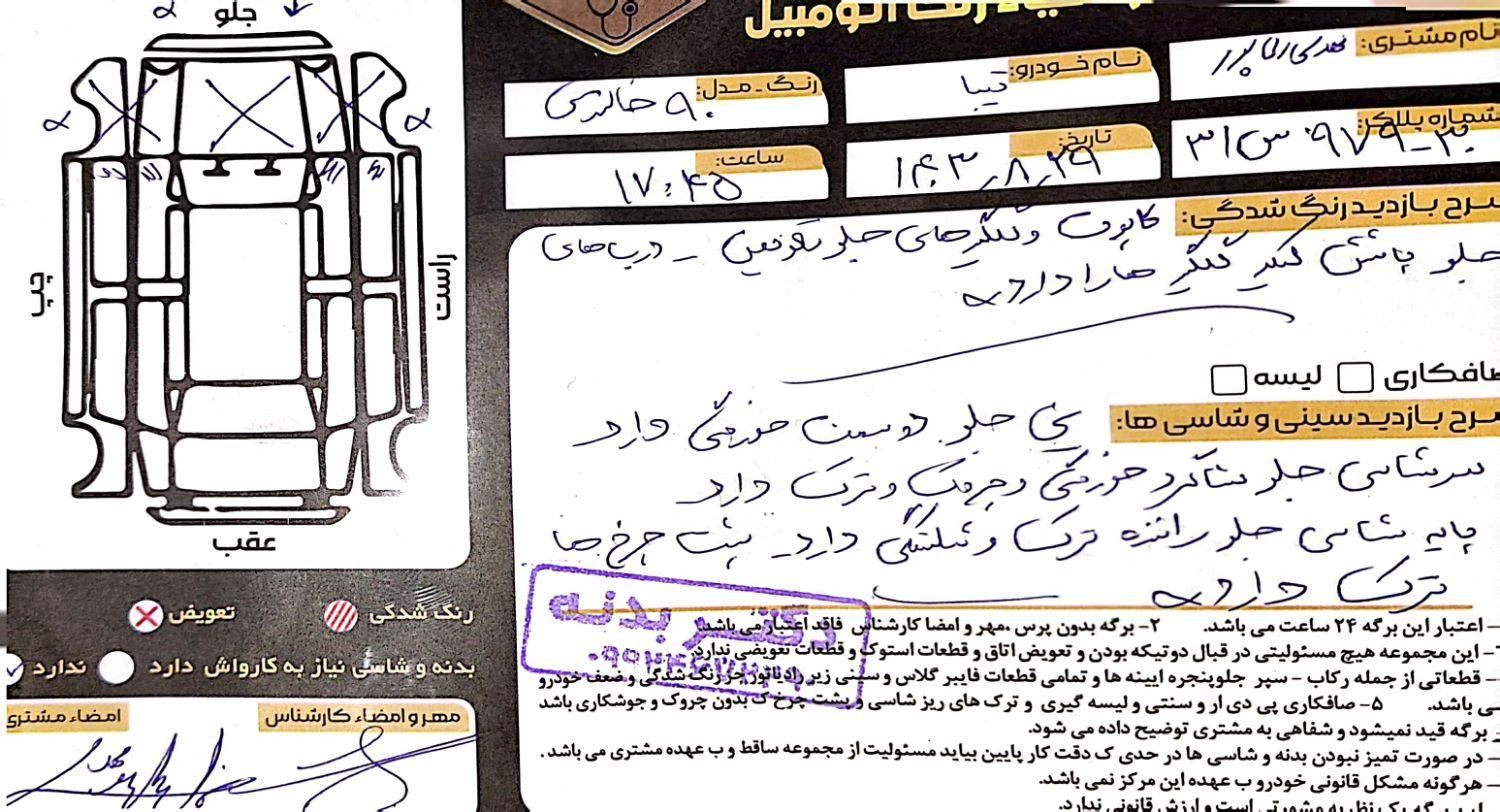 جلو
نام مشتری:
نام خودرو: تیبا
رنگ - مدل: ۹۰ خاکستری
شماره پلاک:
تاریخ: ۱۴۰۳-۸-۲۹
ساعت: ۱۷:۴۵
شرح بازدید رنگ شدگی: کاپوت و گلگیرهای جلو تعویض - درب های
جلو پاشش گیر گلگیر ها را دارد
راست
چپ
صافکاری لیسه
شرح بازدید سینی و شاسی ها: سینی جلو دوسمت خوردگی دارد
سرشاسی جلو شاگرد خوردگی و چروک و ترک دارد
پایه شاسی جلو راننده ترک و شکستگی دارد - پشت چرخ ها
ترک دارد
عقب
رنگ شدگی تعویض
بدنه و شاسی نیاز به کارواش دارد ندارد
مهر و امضاء کارشناس
امضاء مشتری
دکتر بدنه
– اعتبار این برگه ۲۴ ساعت می باشد. ۲- برگه بدون پرس ،مهر و امضا کارشناس فاقد اعتبار می باشد.
– این مجموعه هیچ مسئولیتی در قبال دوتیکه بودن و تعویض اتاق و قطعات استوک و قطعات تعویضی ندارد.
– قطعاتی از جمله رکاب – سپر جلوپنجره ایینه ها و تمامی قطعات فایبر گلاس و سینی زیر رادیاتور جز رنگ شدگی و ضعف خودرو
می باشد. ۵- صافکاری پی دی ار و سنتی و لیسه گیری و ترک های ریز شاسی و پشت چرخ ک بدون چروک و جوشکاری باشد
برگه قید نمیشود و شفاهی به مشتری توضیح داده می شود.
– در صورت تمیز نبودن بدنه و شاسی ها در حدی ک دقت کار پایین بیاید مسئولیت از مجموعه ساقط و ب عهده مشتری می باشد.
– هرگونه مشکل قانونی خودرو ب عهده این مرکز نمی باشد.
برگه یک نظریه مشورتی است و ارزش قانونی ندارد.